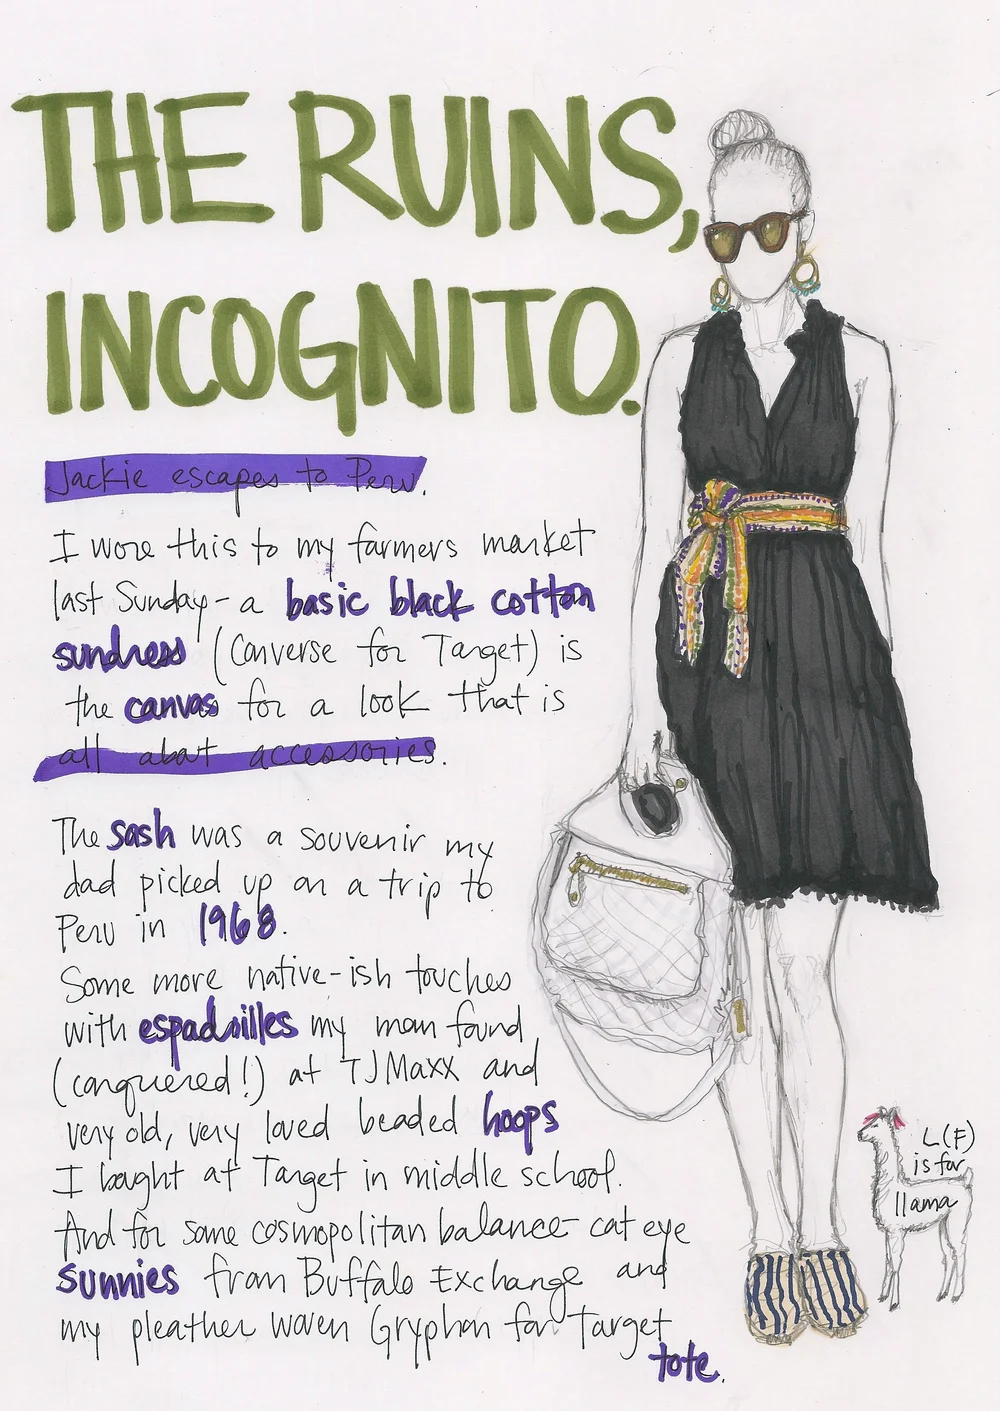 THE RUINS,
INCOGNITO.
Jackie escapes to Peru.
I wore this to my farmers market
last Sunday - a basic black cotton
sundress (Converse for Target) is
the canvas for a look that is
all about accessories.
The sash was a souvenir my
dad picked up on a trip to
Peru in 1968.
Some more native-ish touches
with espadrilles my mom found
(conquered!) at TJ Maxx and
very old, very loved beaded hoops
I bought at Target in middle school.
And for some cosmopolitan balance - cat eye
sunnies from Buffalo Exchange and
my pleather woven Gryphon for Target
tote.
L(F)
is for
llama